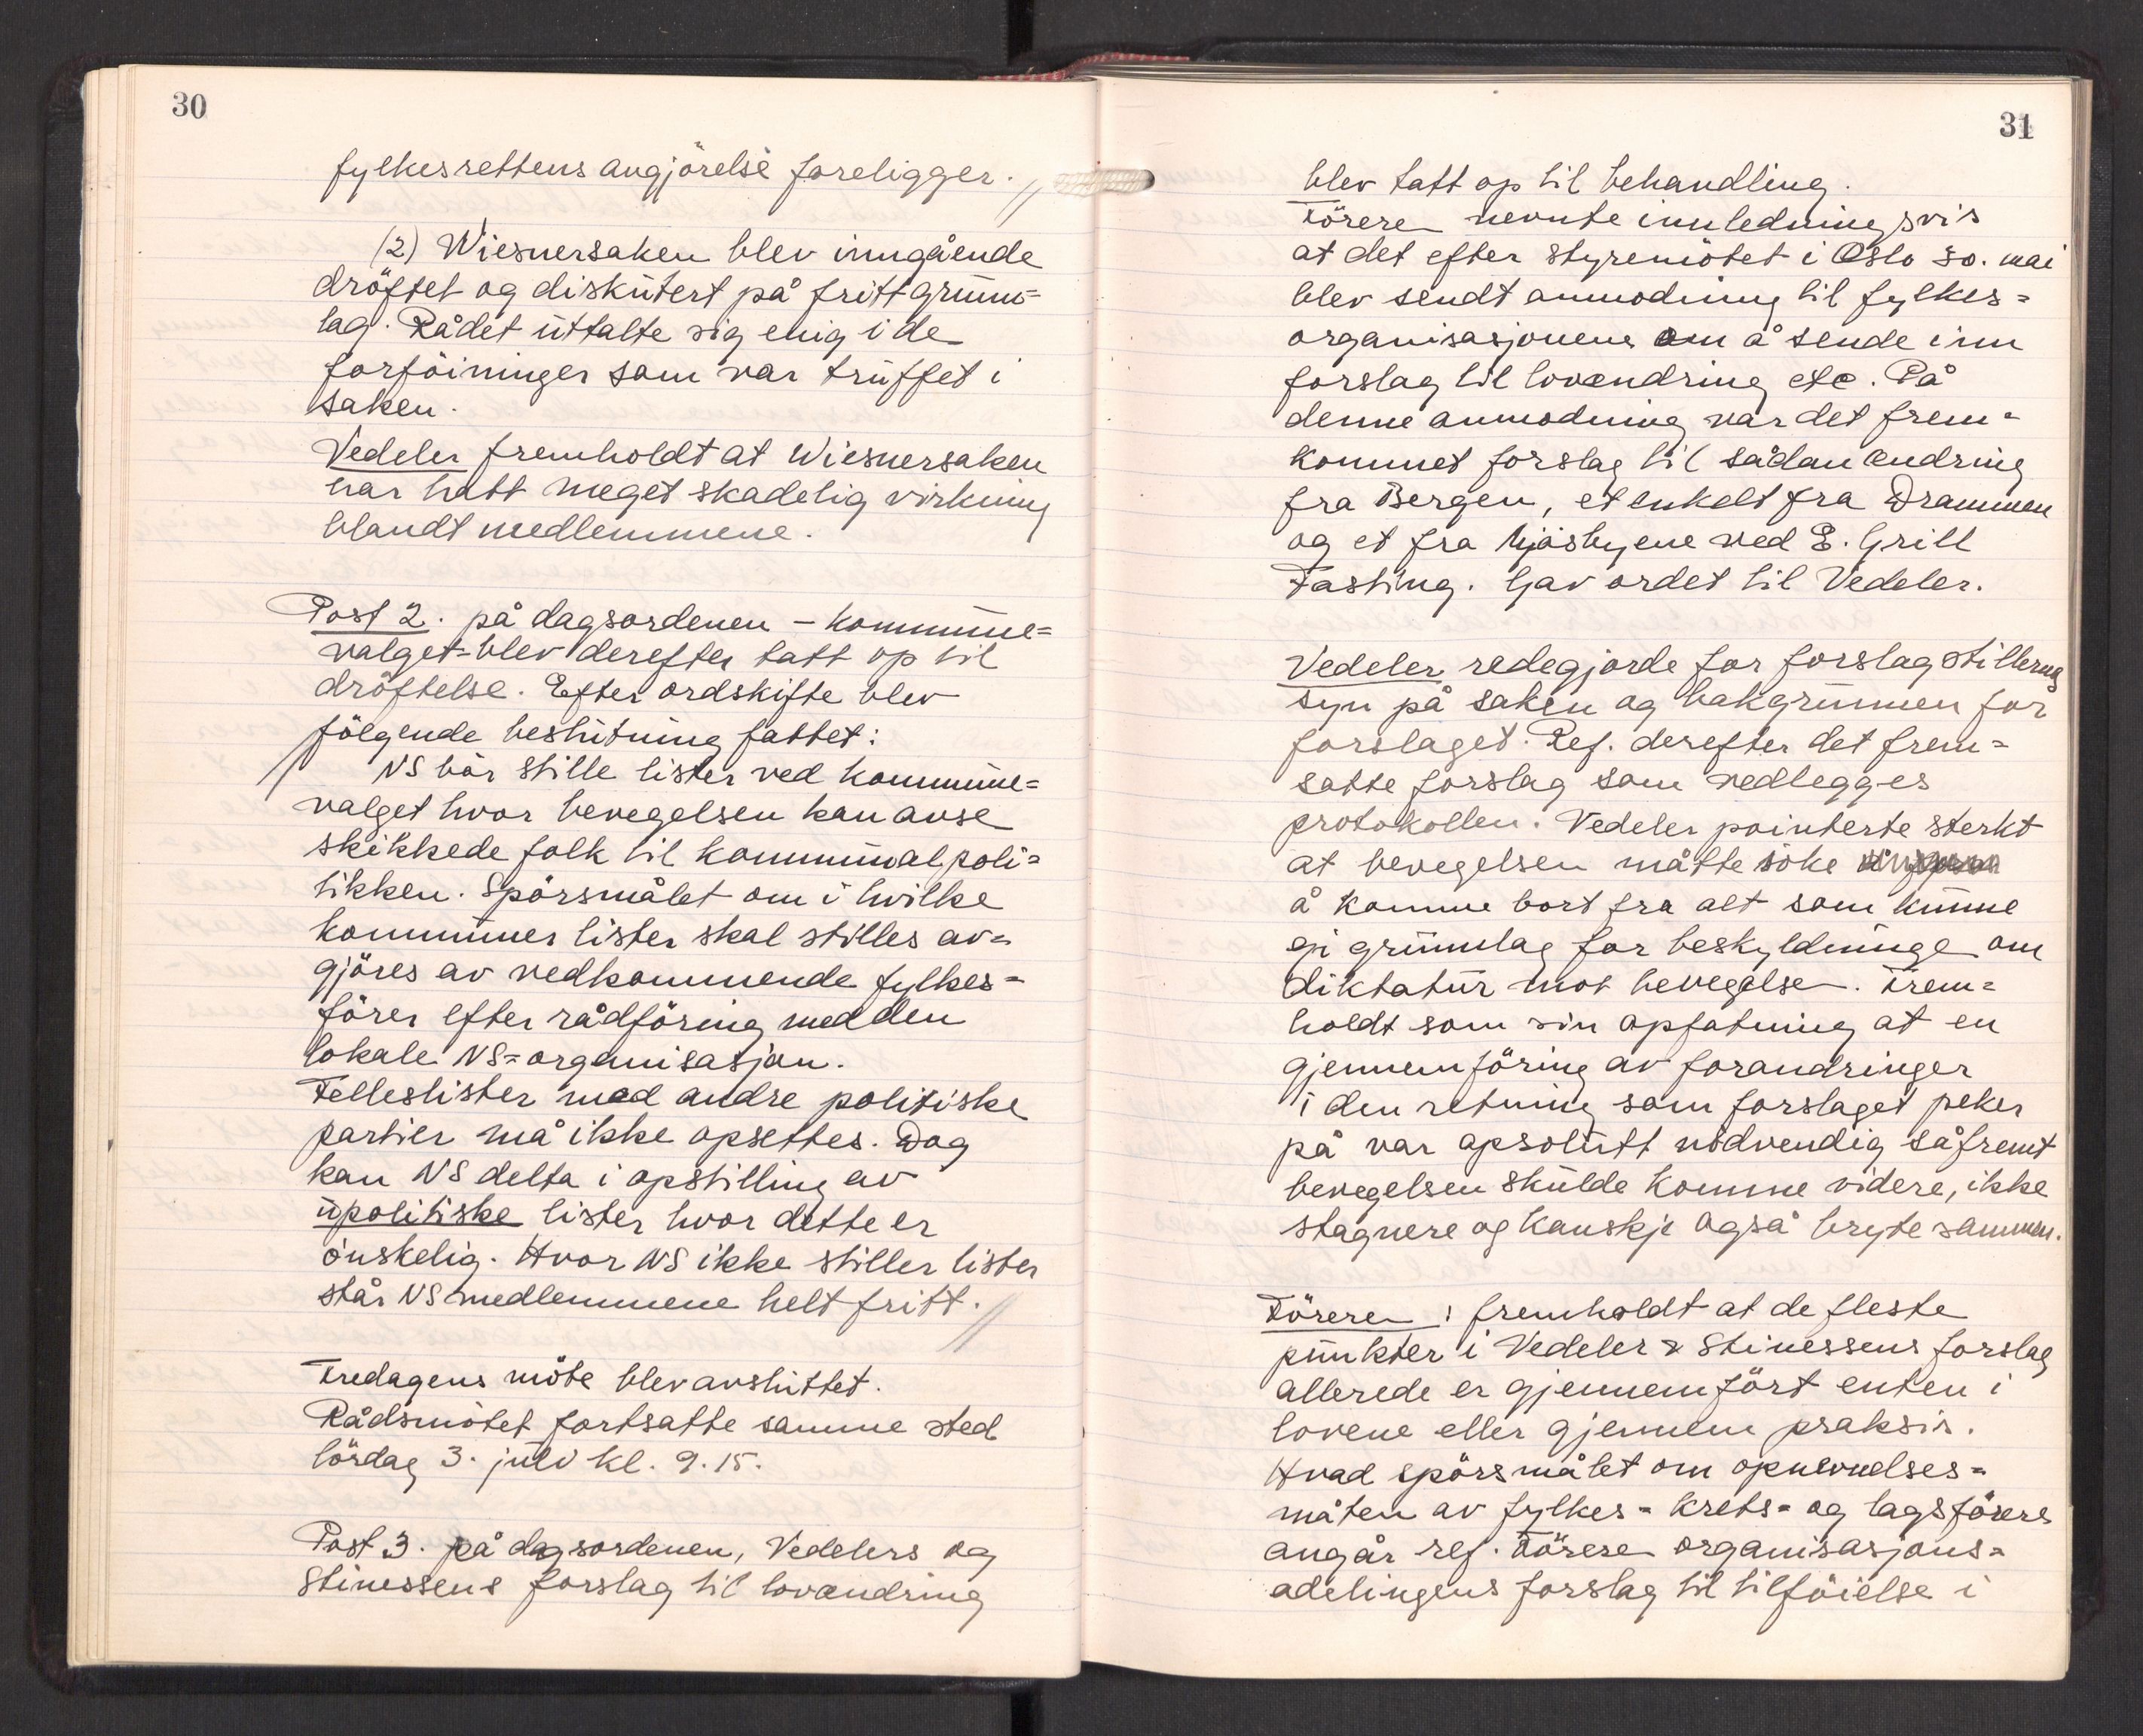 30
fylkesrettens avgjörelse foreligger.
(2) Wiesnersaken blev inngående
dröftet og diskutert på fritt grunn=
lag. Rådet uttalte sig enig i de
forföininger som var truffet i
saken.
Vedeler fremholdt at Wiesnersaken
har hatt meget skadelig virkning
blandt medlemmene.
Post 2. på dagsordenen - kommune=
valget - blev derefter tatt op til
dröftelse. Efter ordskifte blev
fölgende beslutning fattet:
NS bör stille lister ved kommune=
valget hvor bevegelsen kan avse
skikkede folk til kommunalpoli=
tikken. Spörsmålet om i hvilke
kommuner lister skal stilles av=
gjöres av vedkommende fylkes=
förer efter rådföring med den
lokale NS=organisasjon.
Felleslister med andre politiske
partier må ikke opsettes. Dog
kan NS delta i opstilling av
upolitiske lister hvor dette er
önskelig. Hvor NS ikke stiller lister
står NS medlemmene helt fritt.
Fredagens möte blev avsluttet.
Rådsmötet fortsatte samme sted
lördag 3. juli kl. 9.15.
Post 3. på dagsordenen, Vedelers og
Stinessens forslag til lovændring
31
blev tatt op til behandling.
Föreren nevnte innledningsvis
at det efter styremötet i Oslo 30. mai
blev sendt anmodning til fylkes=
organisasjonene om å sende inn
forslag til lovændring etc. På
denne anmodning var det frem=
kommet forslag til sådan ændring
fra Bergen, et enkelt fra Drammen
og et fra Mjösbyene ved E. Grill
Fasting. Gav ordet til Vedeler.
Vedeler redegjorde for forslagstillernes
syn på saken og bakgrunnen for
forslaget. Ref. derefter det frem=
satte forslag som vedlegges
protokollen. Vedeler pointerte sterkt
at bevegelsen måtte söke
å komme bort fra alt som kunne
gi grunnlag for beskyldninge om
diktatur mot bevegelsen. Frem=
holdt som sin opfatning at en
gjennemföring av forandringer
i den retning som forslaget peker
på var apsolutt nödvendig såfremt
bevegelsen skulde komme videre, ikke
stagnere og kanskje også bryte sammen.
Föreren: fremholdt at de fleste
punkter i Vedeler & Stinessens forslag
allerede er gjennemfört enten i
lovene eller gjennem praksis.
Hvad spörsmålet om opnevnelses=
måten av fylkes= krets= og lagsförere
angår ref. Föreren organisasjons=
adelingens forslag til tilföielse i